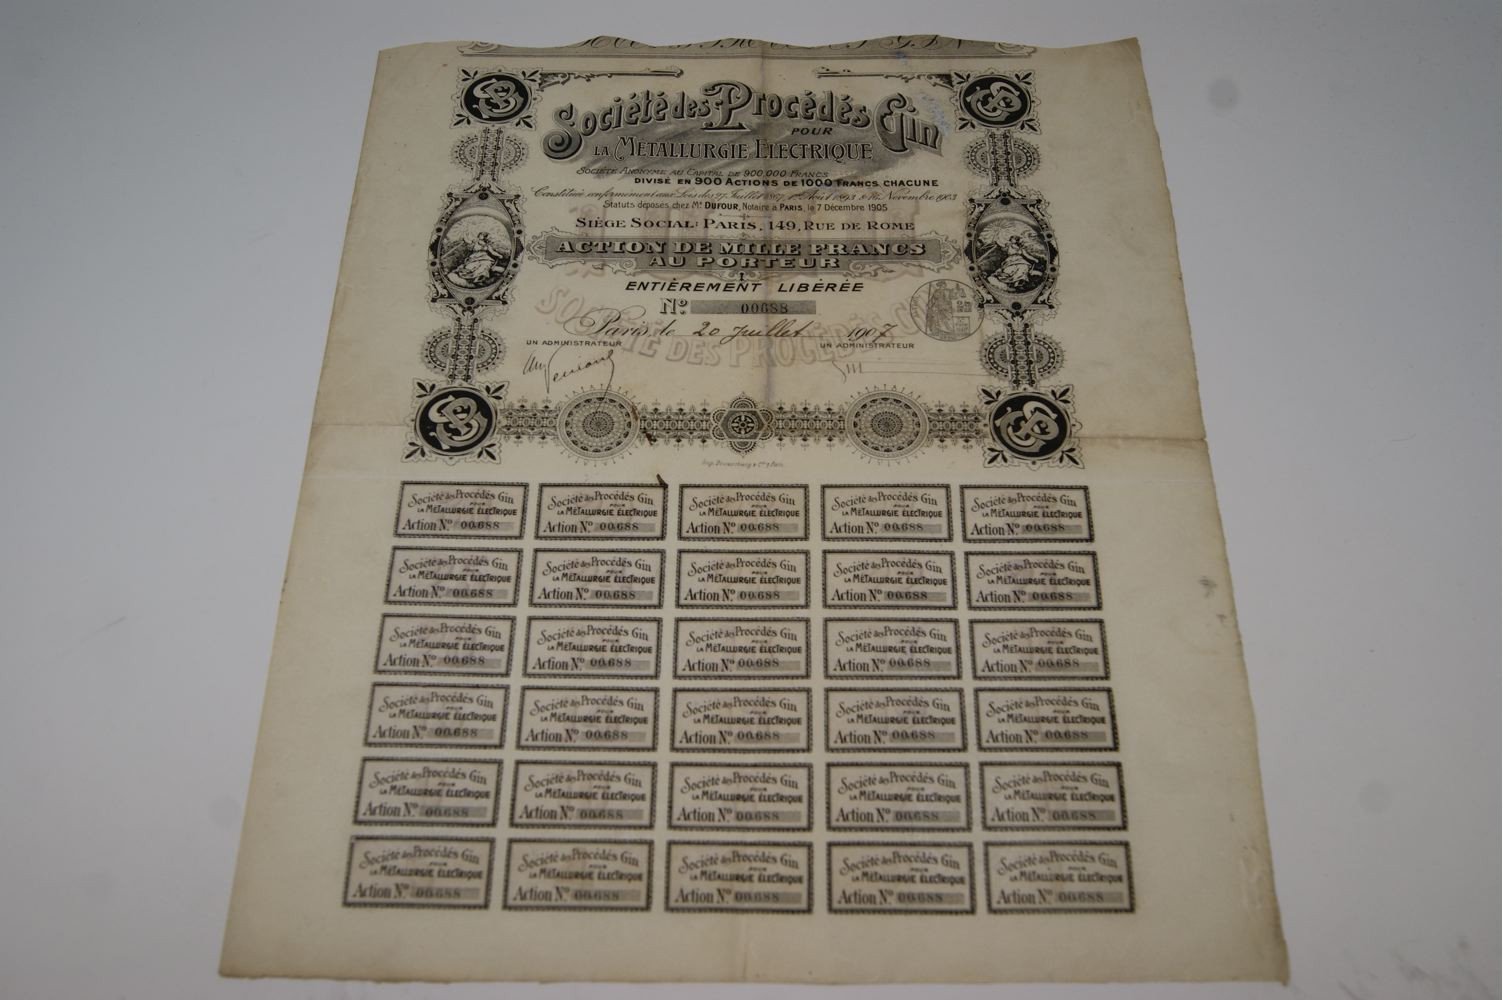 Société des Procédés Gin
POUR
LA MÉTALLURGIE ÉLECTRIQUE
SOCIÉTÉ ANONYME AU CAPITAL DE 900.000 FRANCS
DIVISÉ EN 900 ACTIONS DE 1000 FRANCS CHACUNE
Constituée conformément aux Lois des 27 Juillet 1867, 1er Août 1893 & 16 Novembre 1903
Statuts déposés chez Me DUFOUR, Notaire à PARIS, le 7 Décembre 1905
SIÈGE SOCIAL: PARIS, 149, RUE DE ROME
ACTION DE MILLE FRANCS
AU PORTEUR
ENTIÈREMENT LIBÉRÉE
No 00688
SOCIÉTÉ DES PROCÉDÉS
Paris, le 20 Juillet 1907
UN ADMINISTRATEUR UN ADMINISTRATEUR
Société des Procédés Gin Société des Procédés Gin Société des Procédés Gin Société des Procédés Gin Société des Procédés Gin
POUR POUR POUR POUR POUR
LA MÉTALLURGIE ÉLECTRIQUE LA MÉTALLURGIE ÉLECTRIQUE LA MÉTALLURGIE ÉLECTRIQUE LA MÉTALLURGIE ÉLECTRIQUE LA MÉTALLURGIE ÉLECTRIQUE
Action No 00688 Action No 00688 Action No 00688 Action No 00688 Action No 00688
Société des Procédés Gin Société des Procédés Gin Société des Procédés Gin Société des Procédés Gin Société des Procédés Gin
POUR POUR POUR POUR POUR
LA MÉTALLURGIE ÉLECTRIQUE LA MÉTALLURGIE ÉLECTRIQUE LA MÉTALLURGIE ÉLECTRIQUE LA MÉTALLURGIE ÉLECTRIQUE LA MÉTALLURGIE ÉLECTRIQUE
Action No 00688 Action No 00688 Action No 00688 Action No 00688 Action No 00688
Société des Procédés Gin Société des Procédés Gin Société des Procédés Gin Société des Procédés Gin Société des Procédés Gin
POUR POUR POUR POUR POUR
LA MÉTALLURGIE ÉLECTRIQUE LA MÉTALLURGIE ÉLECTRIQUE LA MÉTALLURGIE ÉLECTRIQUE LA MÉTALLURGIE ÉLECTRIQUE LA MÉTALLURGIE ÉLECTRIQUE
Action No 00688 Action No 00688 Action No 00688 Action No 00688 Action No 00688
Société des Procédés Gin Société des Procédés Gin Société des Procédés Gin Société des Procédés Gin Société des Procédés Gin
POUR POUR POUR POUR POUR
LA MÉTALLURGIE ÉLECTRIQUE LA MÉTALLURGIE ÉLECTRIQUE LA MÉTALLURGIE ÉLECTRIQUE LA MÉTALLURGIE ÉLECTRIQUE LA MÉTALLURGIE ÉLECTRIQUE
Action No 00688 Action No 00688 Action No 00688 Action No 00688 Action No 00688
Société des Procédés Gin Société des Procédés Gin Société des Procédés Gin Société des Procédés Gin Société des Procédés Gin
POUR POUR POUR POUR POUR
LA MÉTALLURGIE ÉLECTRIQUE LA MÉTALLURGIE ÉLECTRIQUE LA MÉTALLURGIE ÉLECTRIQUE LA MÉTALLURGIE ÉLECTRIQUE LA MÉTALLURGIE ÉLECTRIQUE
Action No 00688 Action No 00688 Action No 00688 Action No 00688 Action No 00688
Société des Procédés Gin Société des Procédés Gin Société des Procédés Gin Société des Procédés Gin Société des Procédés Gin
POUR POUR POUR POUR POUR
LA MÉTALLURGIE ÉLECTRIQUE LA MÉTALLURGIE ÉLECTRIQUE LA MÉTALLURGIE ÉLECTRIQUE LA MÉTALLURGIE ÉLECTRIQUE LA MÉTALLURGIE ÉLECTRIQUE
Action No 00688 Action No 00688 Action No 00688 Action No 00688 Action No 00688